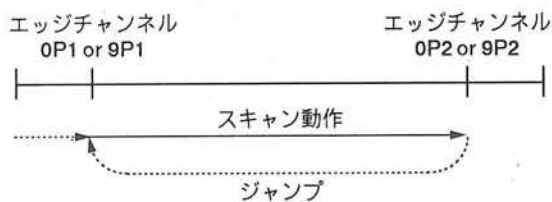 エッジチャンネル
0P1 or 9P1
エッジチャンネル
0P2 or 9P2
スキャン動作
ジャンプ